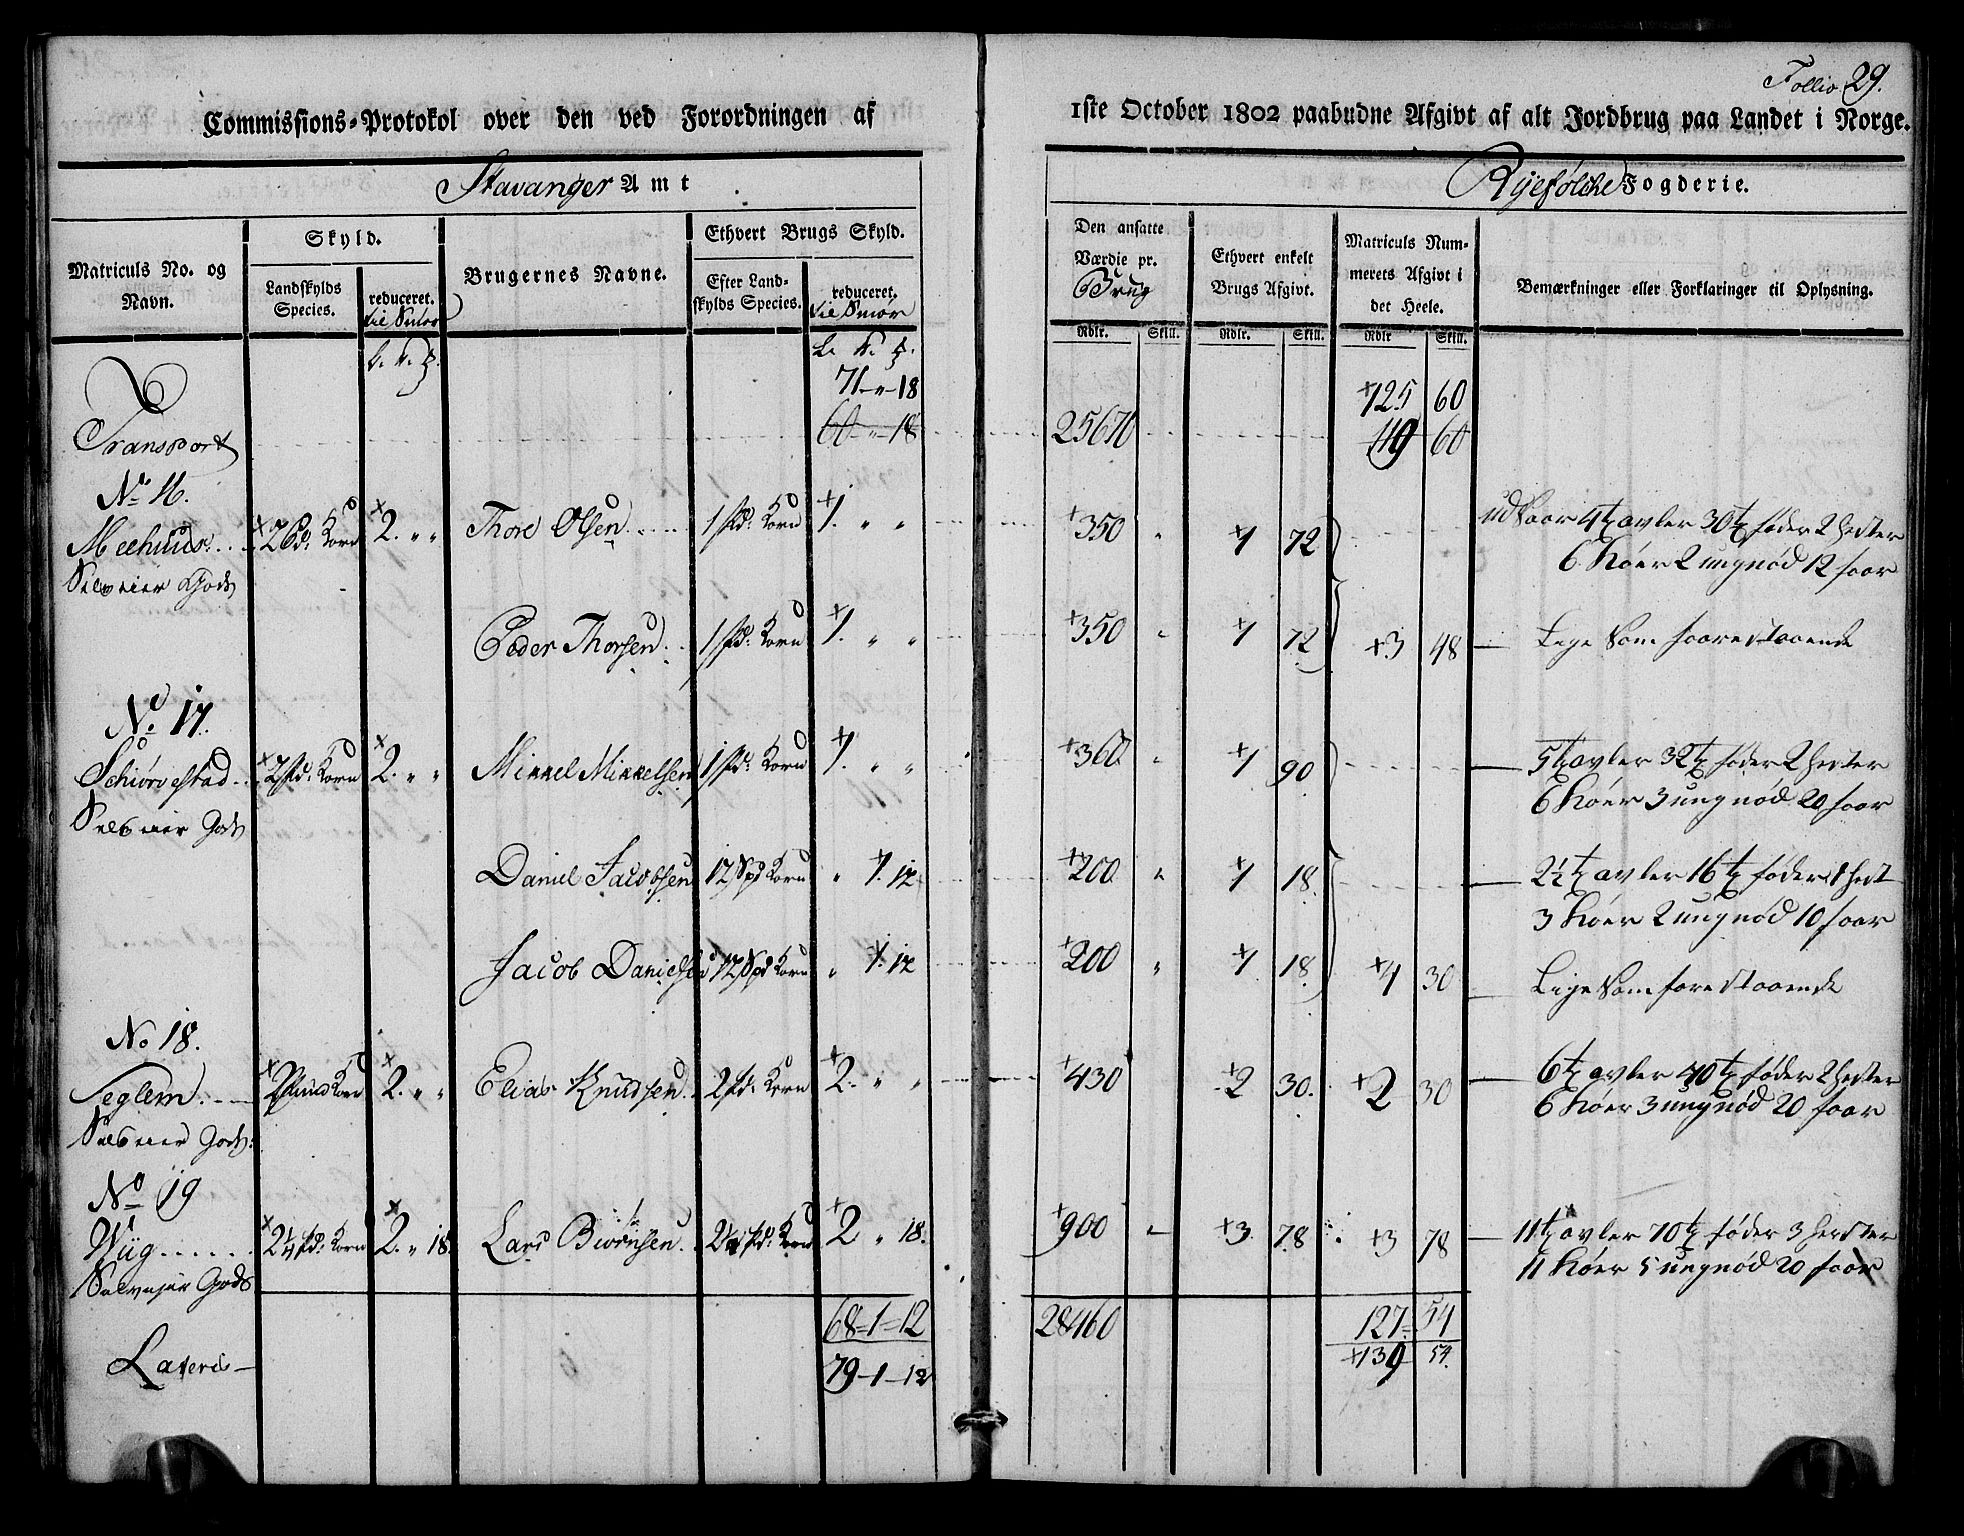 Follio 29.
Commissions-Protokol over den ved Forordningen af 1ste October 1802 paabudne Afgivt af alt Jordbrug paa Landet i Norge.
Stavanger Amt Ryefølche Fogderie.
Matriculs No. og Navn.
Skyld.
Landskylds Species.
reduceret. til Smør
Brugernes Navne.
Ethvert Brugs Skyld.
Efter Landskylds Species.
reduceret. til Smør
Den ansatte Værdie pr. Brug
Ethvert enkelt Brugs Afgivt.
Matriculs Nummerets Afgivt i det Heele.
Bemærkninger eller Forklaringer til Oplysning.
Rdlr. Skill. Rdlr. Skill. Rdlr Skill.
71 - " - 18 +125 60
Transport 60 " 18 25670 119 60
No 16.
Meehuus +2 Pd: Korn +2. " " Thore Olsen 1 Pd: Korn +1. " " +350 " +1 72 udsaar 4 t avler 30 t føder 2 hester
Selveier Gods 6 Køer 2 ungnød 12 faar
Peder Thorsen 1 Pd: Korn +1. " " +350 " +1 72 +3 48 Lige som foorestaaende
No 17.
Schiørvestad +2 Pd: Korn +2. " " Mikkel Mikkelsen 1 Pd: Korn +1. " " +360 " +1 90 5 t avler 32 t føder 2 hester
Selveier Gods 6 Køer 3 ungnød 20 faar
Daniel Jacobsen 12 Spd Korn " +1. 12 +200 " +1 18. 2½ t avler 16 t føder 1 hest
3 Køer 2 ungnød 10 faar
Jacob Danielsen 12 Spd Korn " 1. 12 +200 " +1 18. +4 30 Lige som forestaaende
No 18.
Seglem +2 Pund Korn +2. " " Elias Knudsen 2 Pd: Korn +2. " " +430 +2 30. +2 30 6 t avler 40 t føder 2 hester
Selveier Gods: 6 Køer 3 ungnød 20 faar
No 19
Wiig +2¼ Pd: Korn +2. " 18. Lars Biørnsen 2¼ Pd: Korn +2 " 18. +900 " +3. 78 +3 78 11 t avler 70 t føder 3 hester
Selveyer Gods 11 Køer 5 ungnød 20 faar
68 = 1 = 12 28460 127 = 54
Lateris 79 - 1 - 12 +139 54.